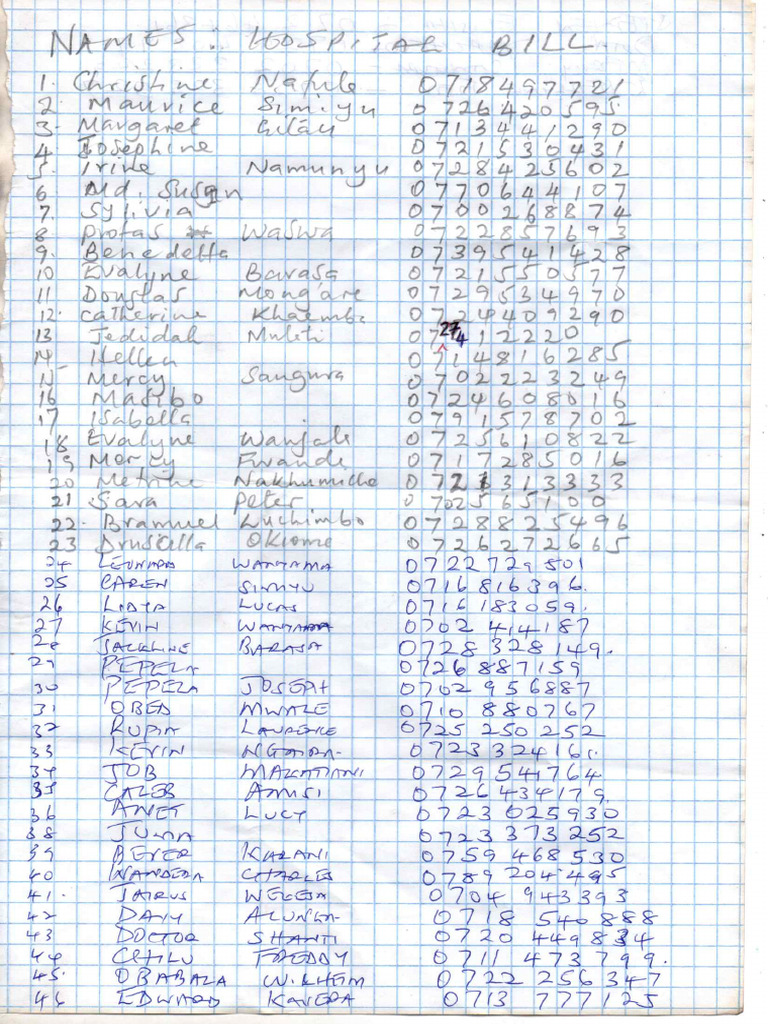 NAMES: HOSPITAL BILL
1. Christine Nafule 0718497721
2. Maurice Simiyu 0726420595
3. Margaret Gitau 0713441290
4 Josephine 0721530431
5. Irine Namunyu 0728425602
6 Md. Susan 0770644107
7. Sylivia 0700268874
8 Protas Waswa 0722857693
9. Benedetta 0739541428
10 Evalyne Barasa 0721550577
11 Douglas Mong'are 0729534970
12. Catherine Khaemba 0724409290
13 Jedidah Muliti 07 27 412220
14 Hellen 0714816285
15 Mercy Sangura 0702223249
16 Masibo 0724608016
17 Isabella 0791578702
18 Evalyne Wanjala 0725610822
19 Mercy 0717285016
20 Nakhumicha 0721313333
21 Sara Peter 0702565100
22. Bramuel Luchimbo 0728825496
23 Druscella Okiome 0726272665
24 WANYAMA 0722 729 801
25 CAREN SIMIYU 0716 816396.
26 LIDYA LUCAS 0716 183059.
27 KEVIN WANYAMA 0702 414187
28 JACKLINE BARASA 0728 328149.
29 PEPELA 0726 887159
30 PEPELA JOSEPH 0702 956887
31 OBED MWALE 0710 880767
32 RUPIA LAURENCE 0725 250 252
33 KEVIN 0723 324 16
34 JOB MAKATIANI 0729 541764
35 CALEB 0726 434179.
36 ANET LUCY 0723 025930
38 JUMA 0723 373 252
39 BEVER KARANI 0759 468 530
40 WANDERA CHARLES 0789 204 495
41. JAIRUS WEKESA 0704 943393
42 0718 540 888
43 DOCTOR SHANTI 0720 449834
44 FREDDY 0711 473 799.
45. OBABALA 0722 256 347
46 EDWARD 0713 777125